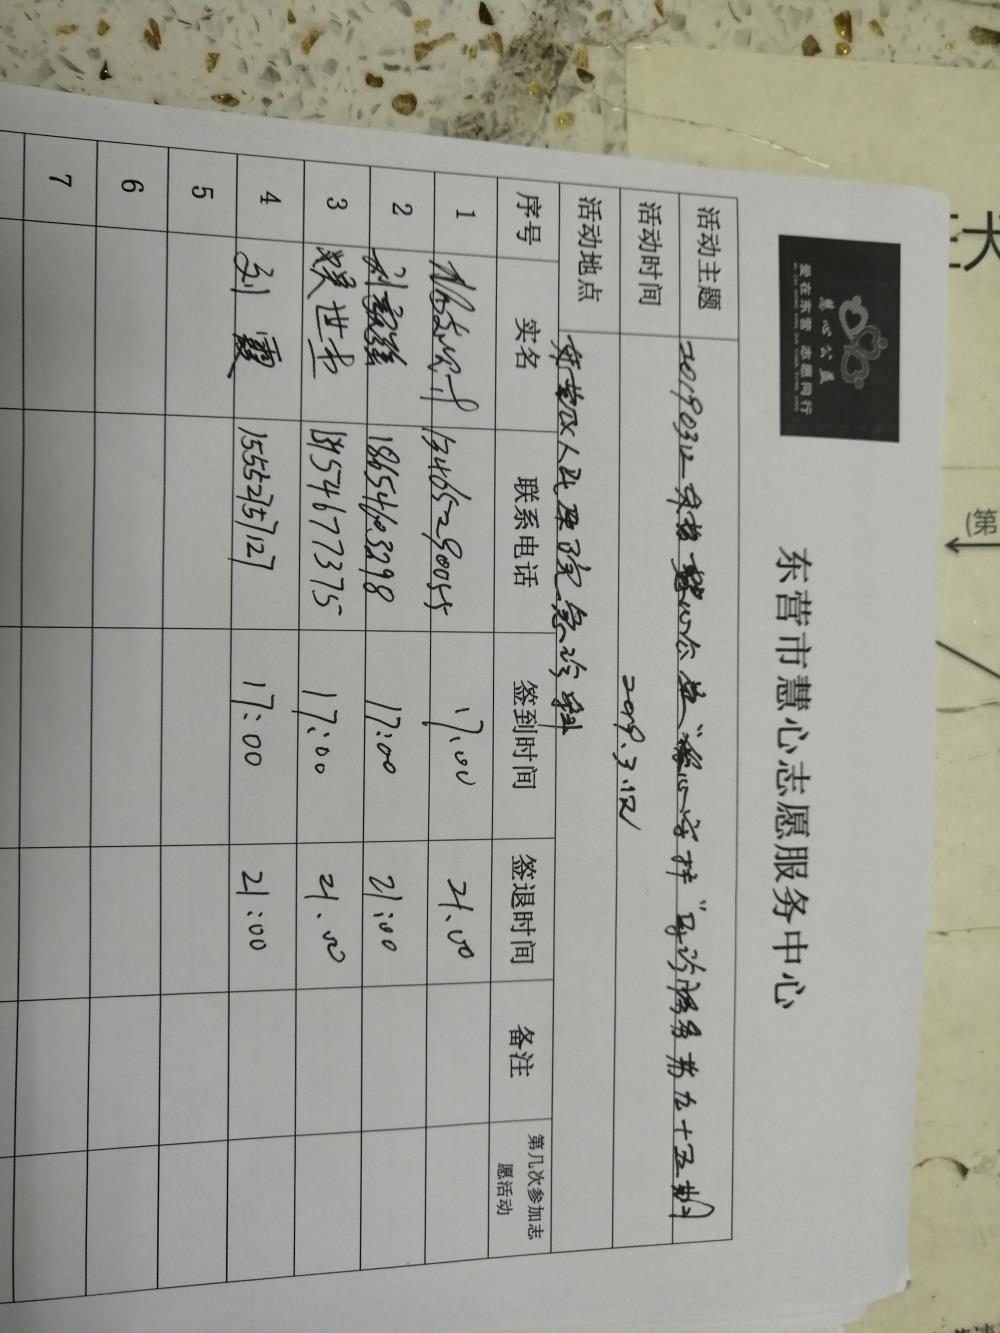 慧心公益
爱在东营 志愿同行
东营市慧心志愿服务中心
活动主题 20190312 慧心公益“ 守护”导诊服务第九十五期
活动时间 2019.3.12
活动地点 人民医院急诊科
序号 实名 联系电话 签到时间 签退时间 备注 第几次参加志愿活动
1 13465290055 17:00 21:00
2 18654603298 17:00 21:00
3 世 18954677375 17:00 21:00
4 刘霞 15552757127 17:00 21:00
5
6
7
大
(第